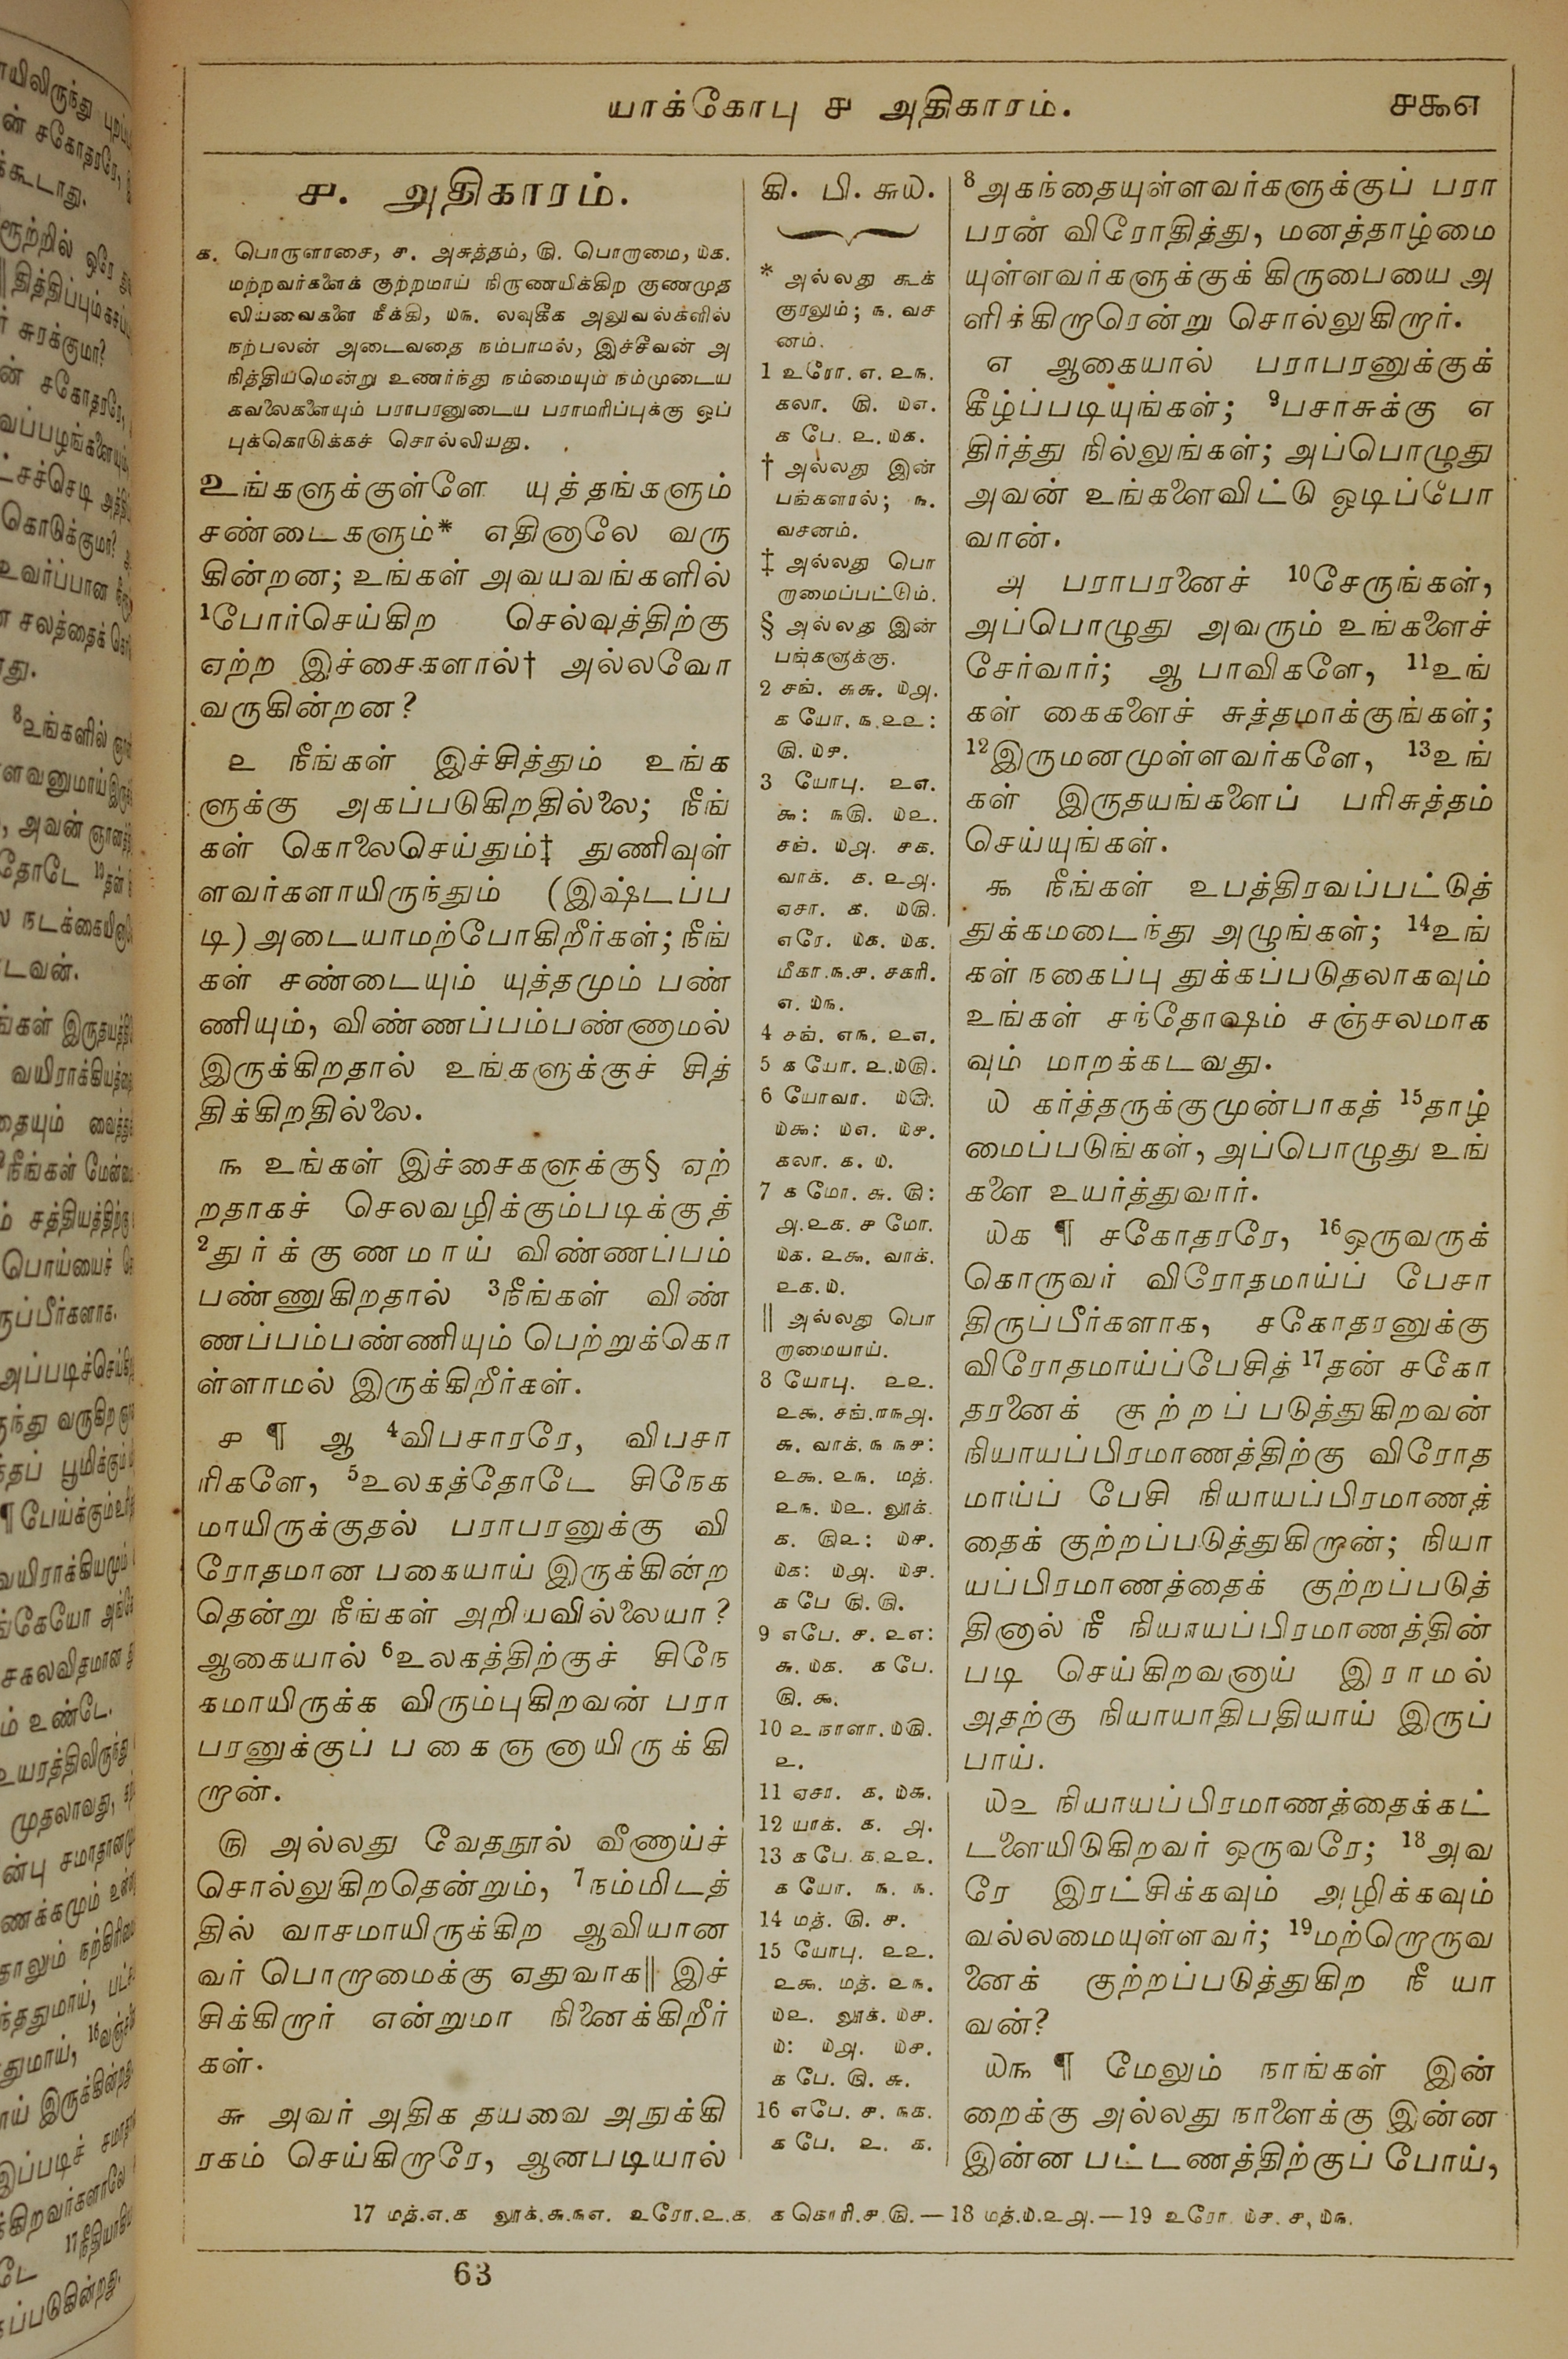 யாக்கோபு ௪ அதிகாரம்.
௪௯௭
௪. அதிகாரம்.
௧. பொருளாசை, ௪. அசுத்தம், ௫. பொறாமை, ௰௧.
மற்றவர்களைக் குற்றமாய் நிருணயிக்கிற குணமுத
லியவைகளை நீக்கி, ௰௩. லவுகீக அலுவல்களில்
நற்பலன் அடைவதை நம்பாமல், இச்சீவன் அ
நித்தியமென்று உணர்ந்து நம்மையும் நம்முடைய
கவலைகளையும் பராபரனுடைய பராமரிப்புக்கு ஒப்
புக்கொடுக்கச் சொல்லியது.
உங்களுக்குள்ளே யுத்தங்களும்
சண்டைகளும்* எதினாலே வரு
கின்றன; உங்கள் அவயவங்களில்
1போர்செய்கிற செல்வத்திற்கு
ஏற்ற இச்சைகளால்† அல்லவோ
வருகின்றன?
௨ நீங்கள் இச்சித்தும் உங்க
ளுக்கு அகப்படுகிறதில்லை; நீங்
கள் கொலைசெய்தும்‡ துணிவுள்
ளவர்களாயிருந்தும் (இஷ்டப்ப
டி) அடையாமற்போகிறீர்கள்; நீங்
கள் சண்டையும் யுத்தமும் பண்
ணியும், விண்ணப்பம்பண்ணாமல்
இருக்கிறதால் உங்களுக்குச் சித்
திக்கிறதில்லை.
௩ உங்கள் இச்சைகளுக்கு§ ஏற்
றதாகச் செலவழிக்கும்படிக்குத்
2துர்க்குணமாய் விண்ணப்பம்
பண்ணுகிறதால் 3நீங்கள் விண்
ணப்பம்பண்ணியும் பெற்றுக்கொ
ள்ளாமல் இருக்கிறீர்கள்.
௪ ¶ ஆ 4விபசாரரே, விபசா
ரிகளே, 5உலகத்தோடே சிநேக
மாயிருக்குதல் பராபரனுக்கு வி
ரோதமான பகையாய் இருக்கின்ற
தென்று நீங்கள் அறியவில்லையா?
ஆகையால் 6உலகத்திற்குச் சிநே
கமாயிருக்க விரும்புகிறவன் பரா
பரனுக்குப் பகைஞனாயிருக்கி
றான்.
௫ அல்லது வேதநூல் வீணாய்ச்
சொல்லுகிறதென்றும், 7நம்மிடத்
தில் வாசமாயிருக்கிற ஆவியான
வர் பொறாமைக்கு ஏதுவாக‖ இச்
சிக்கிறார் என்றுமா நினைக்கிறீர்
கள்.
௬ அவர் அதிக தயவை அநுக்கி
ரகம் செய்கிறாரே, ஆனபடியால்
கி. பி. ௬௰.
* அல்லது கூக்
குரலும்; ௩. வச
னம்.
1 உரோ. ௭. ௨௩.
கலா. ௫. ௰௭.
௧ பே. ௨. ௰௧.
† அல்லது இன்
பங்களால்; ௩.
வசனம்.
‡ அல்லது பொ
றாமைப்பட்டும்.
§ அல்லது இன்
பங்களுக்கு.
2 சங். ௬௬. ௰௮.
௧ யோ. ௩. ௨௨:
௫. ௰௪.
3 யோபு. ௨௭.
௯: ௩௫. ௰௨.
சங். ௰௮. ௪௧.
வாக். ௧. ௨௮.
ஏசா. ௧. ௰௫.
எரே. ௰௧. ௰௧.
மீகா. ௩. ௪. சகரி.
௭. ௰௩.
4 சங். ௭௩. ௨௭.
5 ௧ யோ. ௨. ௰௫.
6 யோவா. ௰௫.
௰௯: ௰௭. ௰௪.
கலா. ௧. ௰.
7 ௧ மோ. ௬. ௫:
௮. ௨௧. ௪ மோ.
௰௧. ௨௯. வாக்.
௨௧. ௰.
‖ அல்லது பொ
றாமையாய்.
8 யோபு. ௨௨.
௨௯. சங். ௱௩௮.
௬. வாக். ௩ ௩௪:
௨௯. ௨௩. மத்.
௨௩. ௰௨. லூக்.
௧. ௫௨: ௰௪.
௰௧: ௰௮. ௰௪.
௧ பே ௫. ௫.
9 எபே. ௪. ௨௭:
௬. ௰௧. ௧ பே.
௫. ௯.
10 ௨ நாளா. ௰௫.
௨.
11 ஏசா. ௧. ௰௬.
12 யாக். ௧. ௮.
13 ௧ பே. ௧. ௨௨.
௧ யோ. ௩. ௩.
14 மத். ௫. ௪.
15 யோபு. ௨௨.
௨௯. மத். ௨௩.
௰௨. லூக். ௰௪.
௰: ௰௮. ௰௪.
௧ பே. ௫. ௬.
16 எபே. ௪. ௩௧.
௧ பே. ௨. ௧.
8அகந்தையுள்ளவர்களுக்குப் பரா
பரன் விரோதித்து, மனத்தாழ்மை
யுள்ளவர்களுக்குக் கிருபையை அ
ளிக்கிறாரென்று சொல்லுகிறார்.
௭ ஆகையால் பராபரனுக்குக்
கீழ்ப்படியுங்கள்; 9பசாசுக்கு எ
திர்த்து நில்லுங்கள்; அப்பொழுது
அவன் உங்களைவிட்டு ஓடிப்போ
வான்.
௮ பராபரனைச் 10சேருங்கள்,
அப்பொழுது அவரும் உங்களைச்
சேர்வார்; ஆ பாவிகளே, 11உங்
கள் கைகளைச் சுத்தமாக்குங்கள்;
12இருமனமுள்ளவர்களே, 13உங்
கள் இருதயங்களைப் பரிசுத்தம்
செய்யுங்கள்.
௯ நீங்கள் உபத்திரவப்பட்டுத்
துக்கமடைந்து அழுங்கள்; 14உங்
கள் நகைப்பு துக்கப்படுதலாகவும்
உங்கள் சந்தோஷம் சஞ்சலமாக
வும் மாறக்கடவது.
௰ கர்த்தருக்குமுன்பாகத் 15தாழ்
மைப்படுங்கள், அப்பொழுது உங்
களை உயர்த்துவார்.
௰௧ ¶ சகோதரரே, 16ஒருவருக்
கொருவர் விரோதமாய்ப் பேசா
திருப்பீர்களாக, சகோதரனுக்கு
விரோதமாய்ப்பேசித் 17தன் சகோ
தரனைக் குற்றப்படுத்துகிறவன்
நியாயப்பிரமாணத்திற்கு விரோத
மாய்ப் பேசி நியாயப்பிரமாணத்
தைக் குற்றப்படுத்துகிறான்; நியா
யப்பிரமாணத்தைக் குற்றப்படுத்
தினால் நீ நியாயப்பிரமாணத்தின்
படி செய்கிறவனாய் இராமல்
அதற்கு நியாயாதிபதியாய் இருப்
பாய்.
௰௨ நியாயப்பிரமாணத்தைக்கட்
டளையிடுகிறவர் ஒருவரே; 18அவ
ரே இரட்சிக்கவும் அழிக்கவும்
வல்லமையுள்ளவர்; 19மற்றொருவ
னைக் குற்றப்படுத்துகிற நீ யா
வன்?
௰௩ ¶ மேலும் நாங்கள் இன்
றைக்கு அல்லது நாளைக்கு இன்ன
இன்ன பட்டணத்திற்குப் போய்,
17 மத். ௭. ௧ லூக். ௬. ௩௭. உரோ. ௨. ௧. ௧ கொரி. ௪. ௫. — 18 மத். ௰. ௨௮. — 19 உரோ. ௰௪. ௪, ௰௩.
63